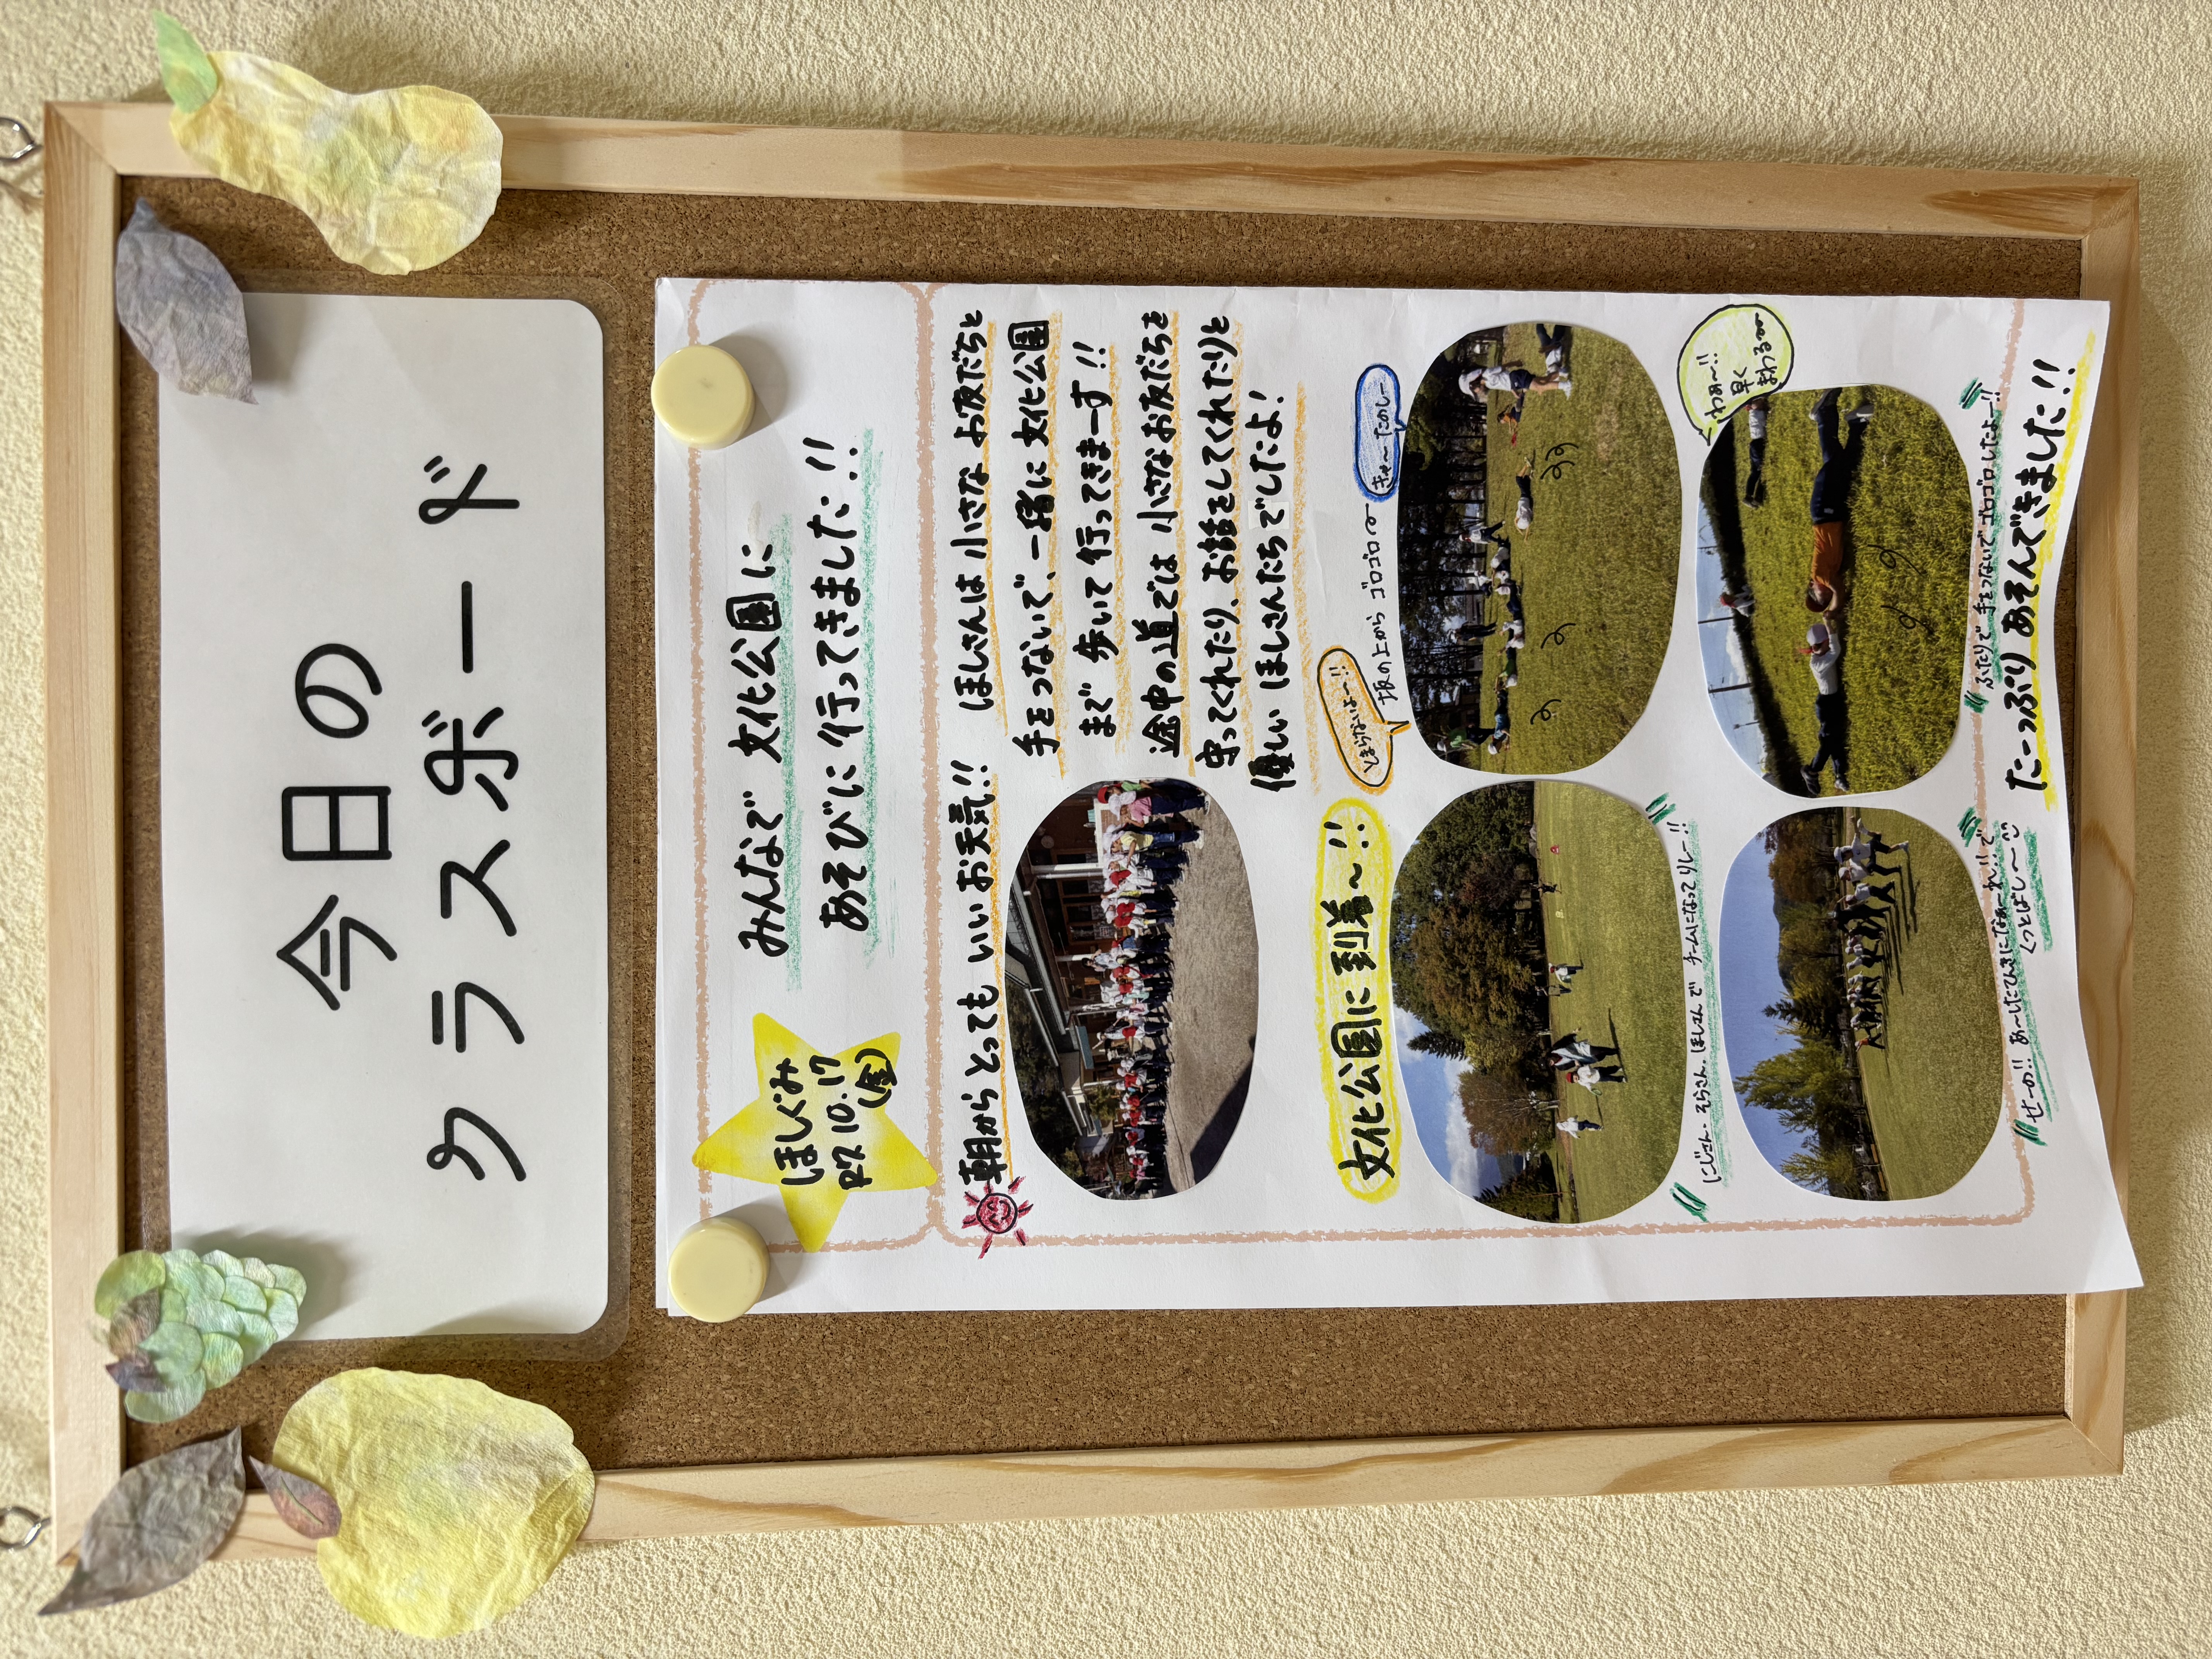 今日の
クラスボード
ほしぐみ
R7.10.17
(金)
みんなで 文化公園に
あそびに行ってきました!!
朝から とっても いいお天気!!
ほしさんは 小さな お友だちと
手をつないで、一緒に 文化公園
まで 歩いて 行ってきまーす!!
途中の道では 小さなお友だちを
守ってくれたり、お話をしてくれたりと
優しい ほしさんたちでしたよ!
文化公園に 到着〜!!
とまらないよ〜!!
坂の上から ゴロゴロ〜
きゃ〜たのしー
にじさん・そらさん・ほしさんで チームになって リレー!!
わぁ〜!!
早く
まわる〜
せーの!! あ〜したてんきになぁ〜れ!!で
くつとばし〜
ふたりで 手をつないで ゴロゴロしたよー!!
たーっぷり あそんできました!!